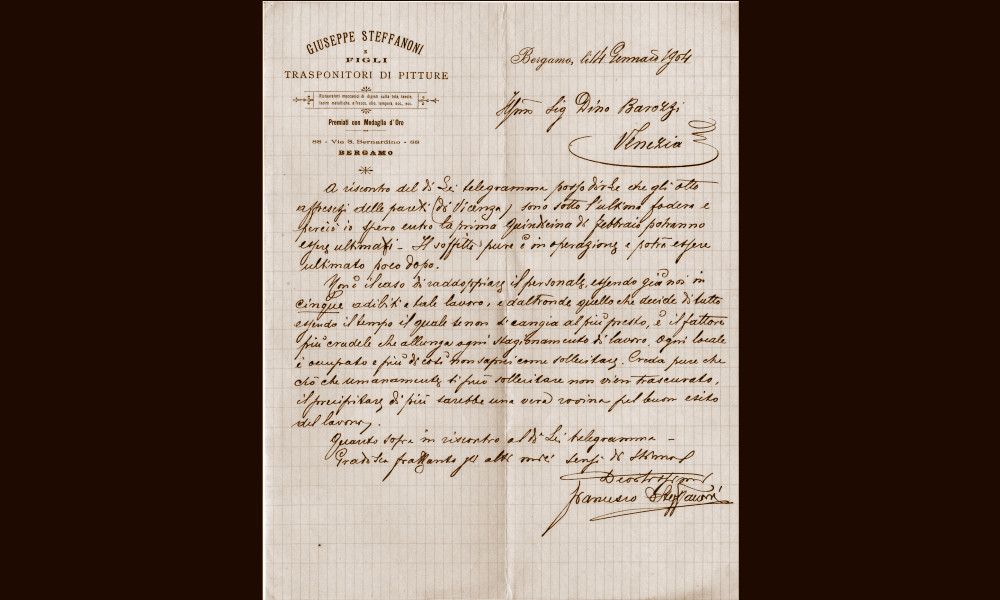 GIUSEPPE STEFFANONI
E
FIGLI
TRASPONITORI DI PITTURE
Premiati con Medaglia d'Oro
88 - Via S. Bernardino - 88
BERGAMO
Bergamo, li 14 Gennaio 1904
Sig Dino Barozzi
Venezia
A riscontro del di Lei telegramma posso dirLe che gli otto
affreschi delle pareti (di Vicenza) sono sotto l'ultima fodera e
perciò io spero entro la prima quindicina di febbraio potranno
essere ultimati - Il soffitto pure è in operazione e potrà essere
ultimato poco dopo.
Non è il caso di raddoppiare il personale, essendo già noi in
cinque adibiti a tale lavoro, e d'altronde quello che decide di tutto
essendo il tempo il quale se non si cangia al più presto, è il fattore
più crudele che allunga ogni stagionamento di lavoro. Ogni locale
è occupato e più di così non saprei come sollecitare. Creda pure che
ciò che umanamente si può sollecitare non vien trascurato,
il precipitare di più sarebbe una vera rovina pel buon esito
del lavoro.
Quanto sopra in riscontro al di Lei telegramma -
Gradisca frattanto gli atti miei sensi di Stima
Francesco Steffanoni